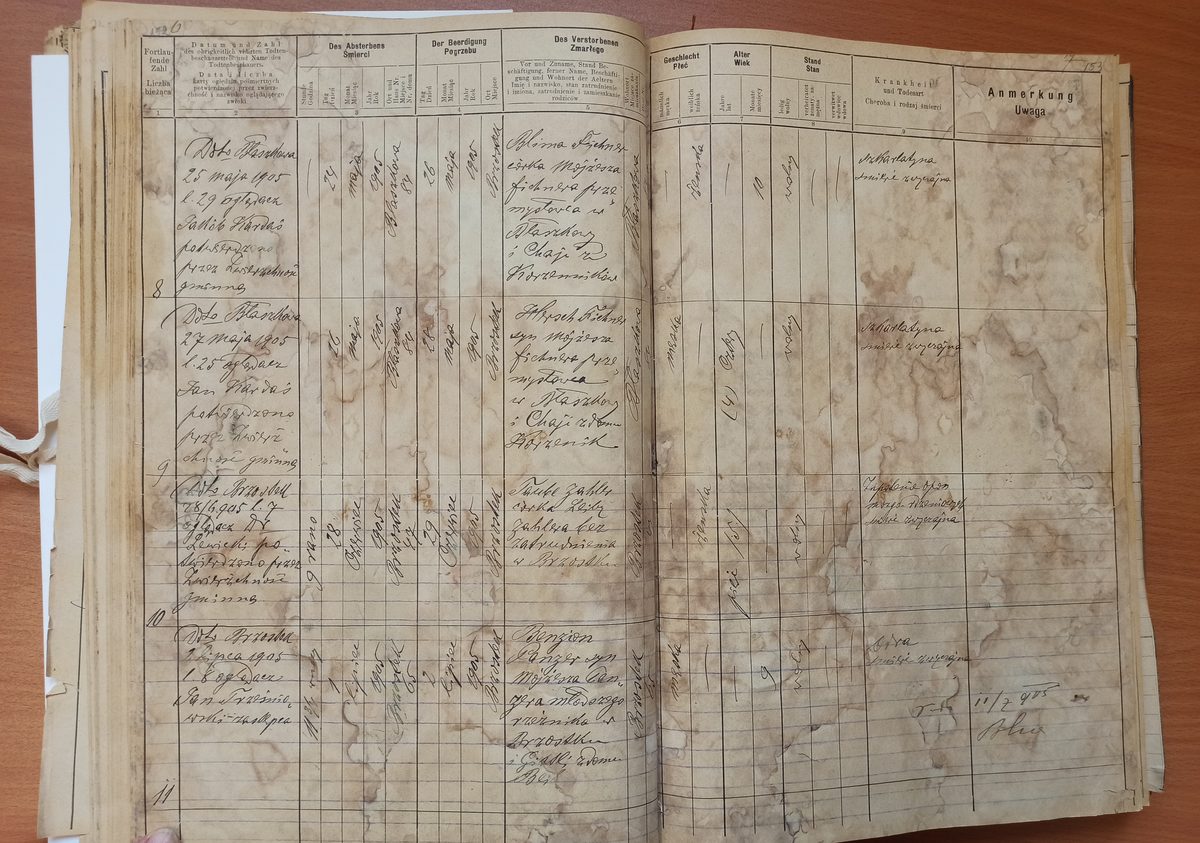 6
153
Fortlau-
fende
Zahl
Liczba
bieżąca
Datum und Zahl
des obrigkeitlich vidirten Todten-
beschauzettels und Name des
Todtenbeschauers.
Data i liczba
karty oględzin pośmiertnych
potwierdzonej przez zwierz-
chność i nazwisko oglądającego
zwłoki
Des Absterbens
Śmierci
Stunde
Godzina
Tag
Dzień
Monat
Miesiąc
Jahr
Rok
Ort und
Haus Nr.
Miejsce i
No. domu
Der Beerdigung
Pogrzebu
Tag
Dzień
Monat
Miesiąc
Jahr
Rok
Ort
Miejsce
Des Verstorbenen
Zmarłego
Vor und Zuname, Stand Be-
schäftigung, ferner Name, Beschäfti-
gung und Wohnort der Aeltern
Imię i nazwisko, stan zatrudnienie
i imiona, zatrudnienie i zamieszkanie
rodziców
Geschlecht
Płeć
männlich
męska
weiblich
żeńska
Alter
Wiek
Jahre
lat
Monate
miesięcy
Stand
Stan
ledig
wolny
Krankheit
und Todesart
Choroba i rodzaj śmierci
Anmerkung
Uwaga
1
2
3
4
5
6
7
8
9
10
8
Dtto Błaszkowa
25 maja 1905
l. 29 oglądacz
Jakób Kardaś
potwierdzono
przez Zwierzchność
gminną
24
maja
1905
Błaszkowa
84
26
maja
1905
Brzostek
Blima Fichner
córka Mojżesza
Fichnera prze
mysłowca w
Błaszkowy
i Chaji z
Korzenników
Błaszkowa
—
żeńska
—
10
wolny
—
—
szkarlatyna
śmierć zwyczajna
9
Dtto Błaszkowa
27 maja 1905
l. 25 oglądacz
Jan Kardaś
potwierdzono
przez Zwierz
chność gminną
26
maja
1905
Błaszkowa
84
28
maja
1905
Brzostek
Hersch Fichner
syn Mojżesza
Fichnera prze
mysłowca
w Błaszkowy
i Chaji z domu
Korzennik
Błaszkowa
męska
—
(4) Cztery
—
wolny
—
—
szkarlatyna
śmierć zwyczajna
10
Dtto Brzostek
28/6 905 l. 7
oglądacz Dr
Lewicki po-
twierdzono przez
Zwierzchność
gminną
9 rano
28
Czerwiec
1905
Brzostek
29
Czerwiec
1905
Brzostek
Taube Zahler
córka Leiby
Zahlera bez
zatrudnienia
w Brzostku
Brzostek
—
żeńska
pięć (5)
—
wolny
—
—
Zapalenie opon
śmierć zwyczajna
11
Dtto Brzostek
1 lipca 1905
l. 8 oglądacz
zastępca
1
lipiec
1905
Brzostek
65
2
lipiec
1905
Brzostek
Benzion
Tanzer syn
Mojżesza Tan-
zera młodszego
rzeźnika w
Brzostku
i Gitli z domu
Brzostek
65
męska
—
—
9
wolny
—
—
Odra
śmierć zwyczajna
11/7 905